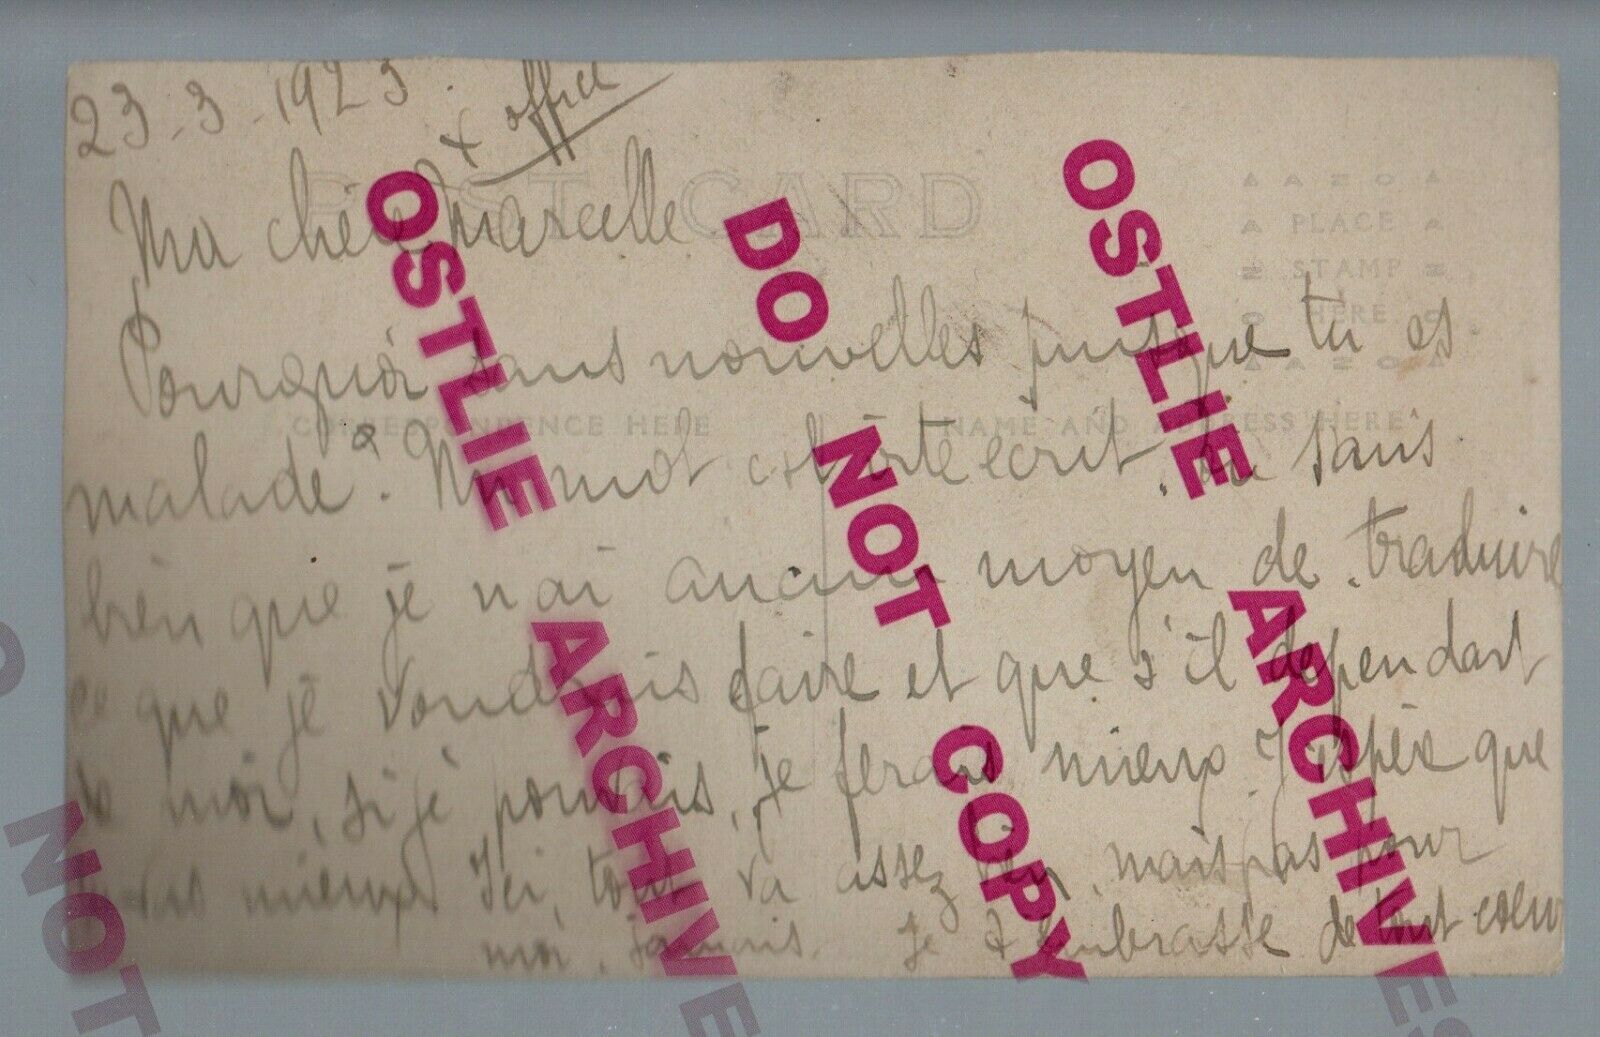 23-3-1923.
+ office
POST CARD
Ma chère Marcelle
AZO
PLACE
STAMP
HERE
AZO
Pourquoi sans nouvelles puisque tu es
CORRESPONDENCE HERE
NAME AND ADDRESS HERE
malade? Un mot est vite écrit. Tu sais
bien que je n'ai aucun moyen de traduire
ce que je voudrais faire et que s'il dependait
de moi, si je pouvais, je ferais mieux. J'espère que
tu vas mieux. Ici, tout va assez bien, mais pas pour
moi, jamais. Je t'embrasse de tout coeur
OSTLIE ARCHIVES
DO NOT COPY
OSTLIE ARCHIVES
NOT